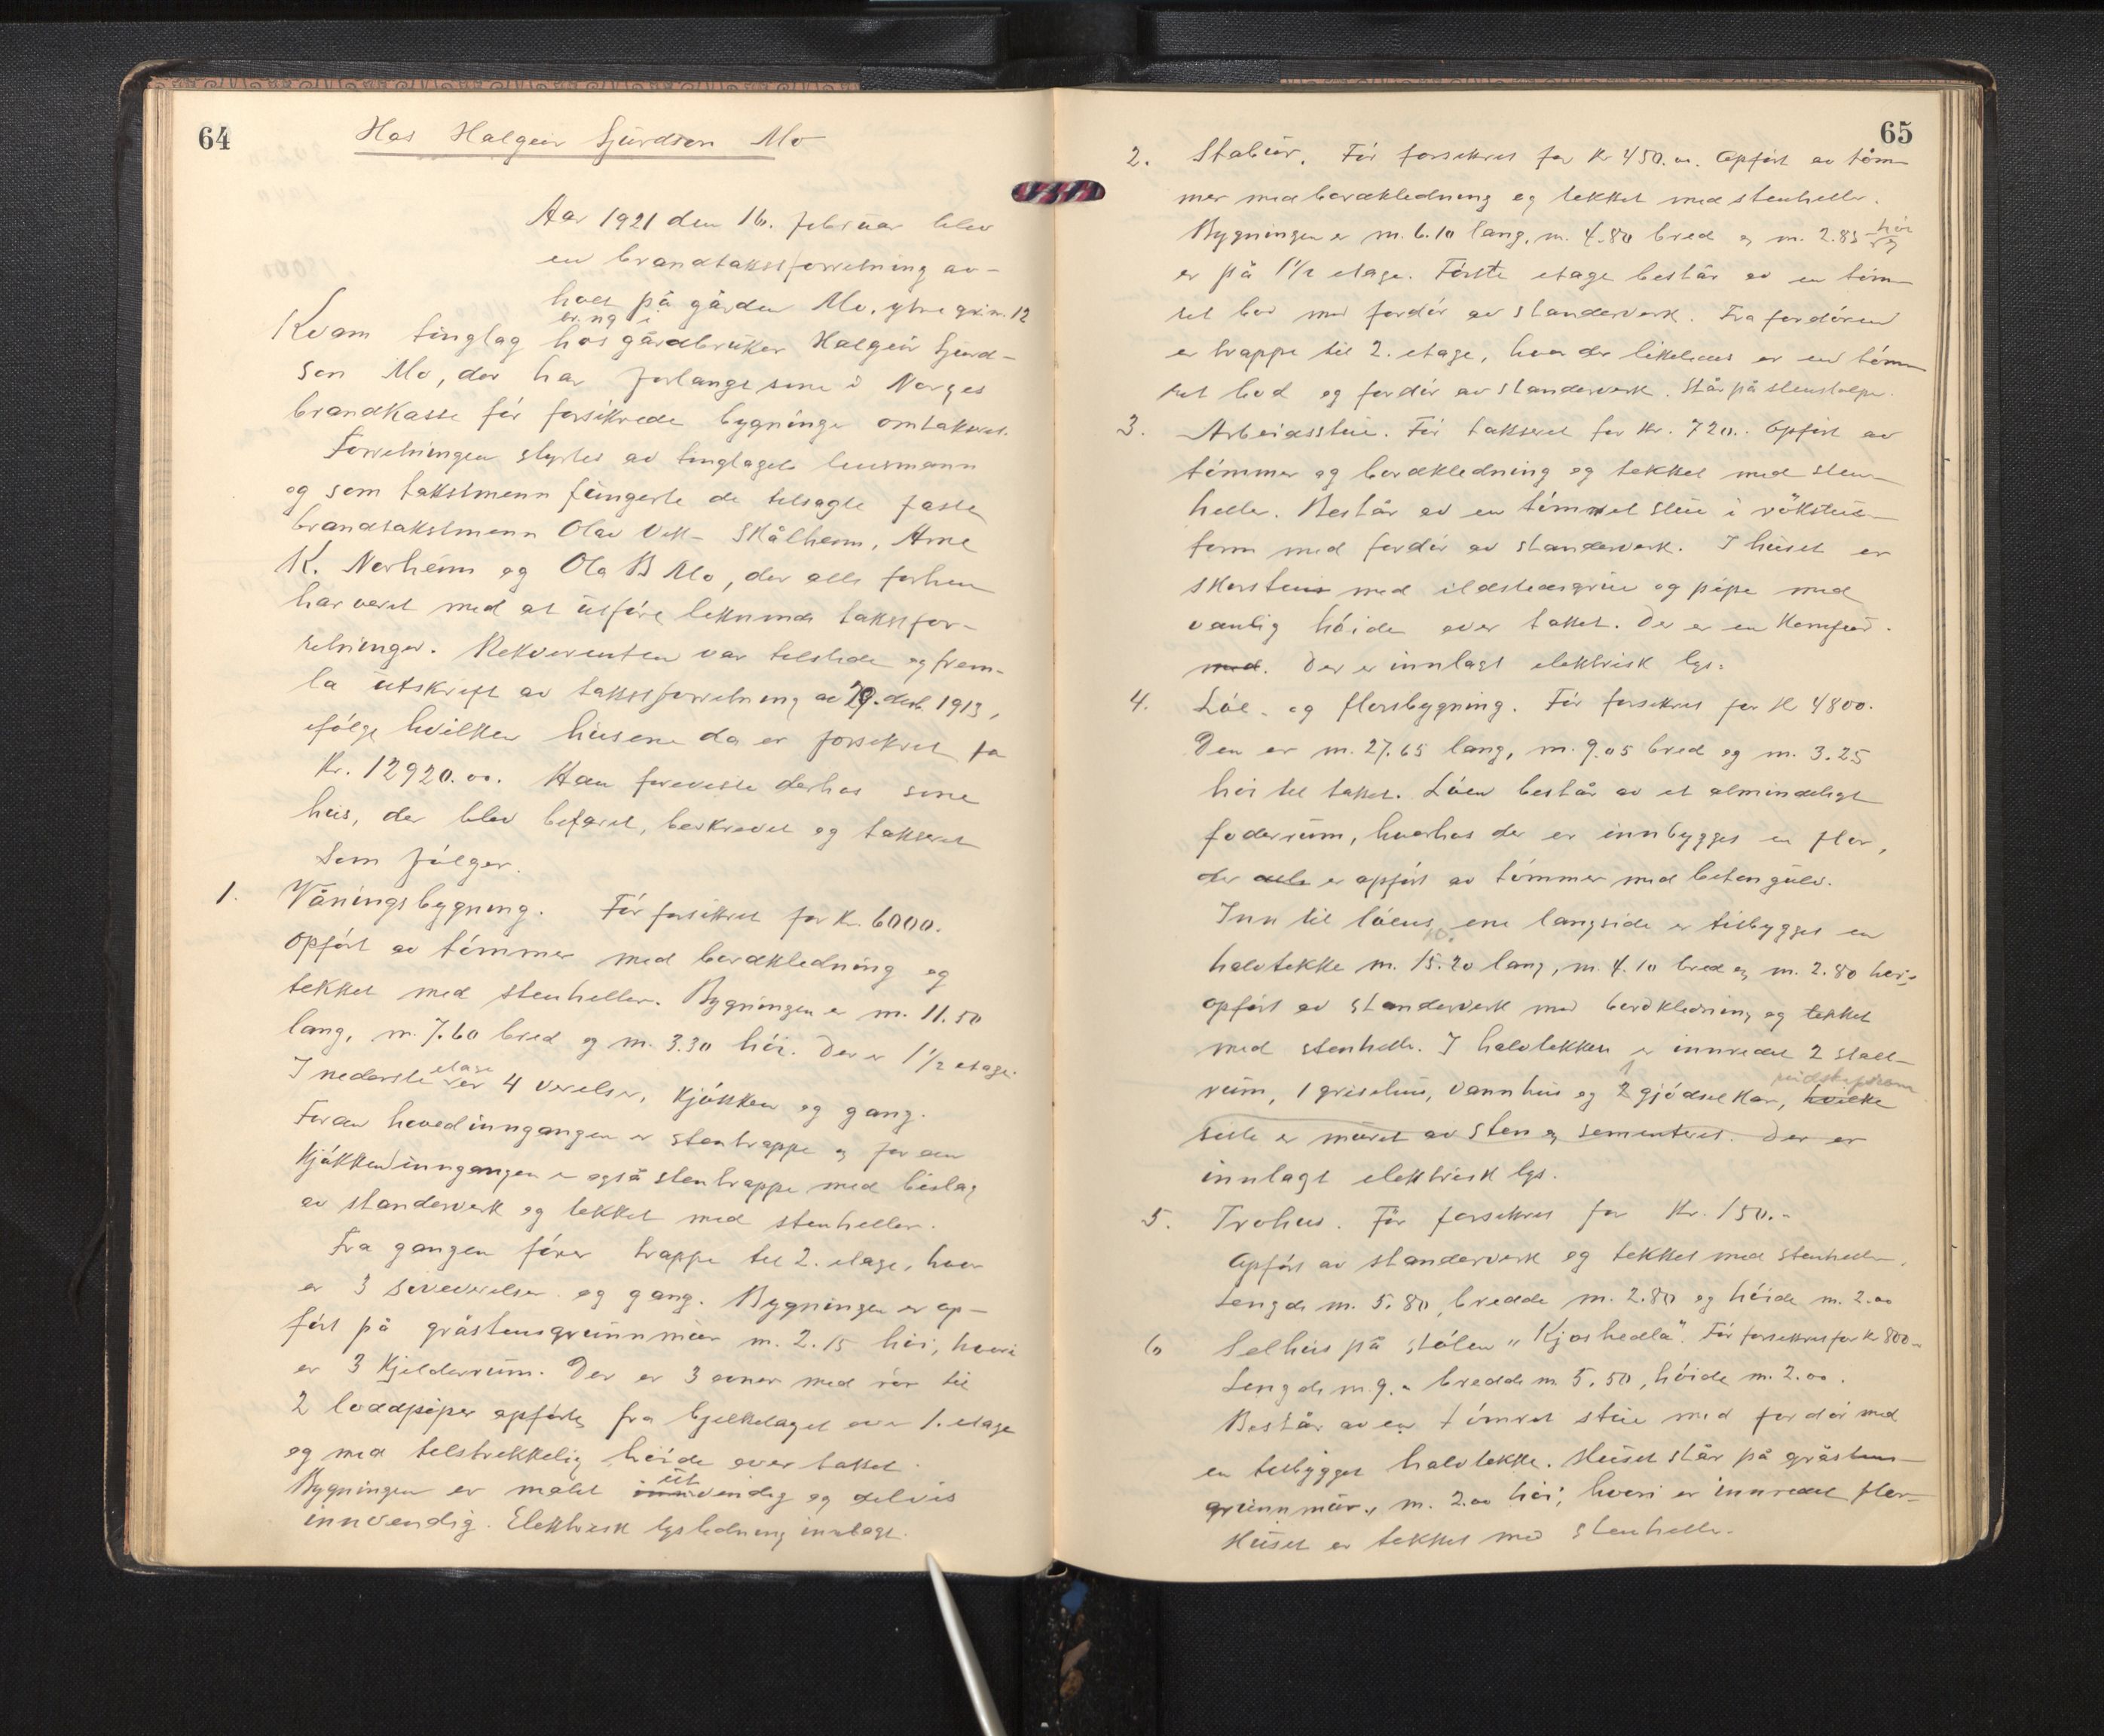 64
Hos Halgeir Sjurdson Mo
Aar 1921 den 16. februar blev
en brandtakstforretning av-
holt på gården Mo, ytre gr.nr. 12
br. nr. 9 i
Kvam tinglag hos gårdbruker Halgeir Sjurd-
son Mo, der har forlangt sine i Norges
brandkasse før forsikrede bygninger omtaksert.
Forretningen styrtes av tinglagets lensmann
og som takstmenn fungerte de tilsagte faste
brandtakstmenn Olav Skålheim, Arne
K. Norheim og Ola B Mo, der alle forhen
har veret med at utføre liknende takstfor-
retninger. Rekvirenten var tilstede og frem-
la utskrift av takstforretning av 29. desb. 1913,
ifølge hvilken husene da er forsikret for
Kr. 12920.00. Han foreviste derhos sine
hus, der blev befaret, beskrevet og taksert
som følger.
1. Våningsbygning. Før forsikret for Kr. 6000.
Opført av tømmer med bordkledning og
tekket med stenheller. Bygningen er m. 11.50
lang, m. 7.60 bred og m. 3.30 høi. Der er 1½ etage.
I nederste etage er 4 verelser, kjøkken og gang.
Foran hovedinngangen er stentrappe og foran
kjøkkeninngangen er også stentrappe med bislag
av standerverk og tekket med stenheller.
Fra gangen fører trappe til 2. etage, hvor
er 3 soveverelser og gang. Bygningen er op-
ført på gråstensgrunnmur m. 2.15 høi, hvori
er 3 kjelderrum. Der er 3 ovner med rør til
2 loddpiper opførte fra bjelkelaget over 1. etage
og med tilstrekkelig høide over taket.
Bygningen er malt utvendig og delvis
innvendig. Elektrisk lysledning innlagt.
65
2. Stabur. Før forsikret for Kr 450.00. Opført av tøm-
mer med bordkledning og tekket med stenheller.
Bygningen er m. 6.10 lang, m. 4.80 bred og m. 2.85 høi og
er på 1½ etage. Første etage består av en tøm-
ret bod med fordør av standerverk. Fra fordøren
er trappe til 2. etage, hvor der likeledes er en tøm-
ret bod og fordør av standerverk. Står på stenstolper.
3. Arbeidsstue. Før taksert for Kr. 720.. Opført av
tømmer og bordkledning og tekket med sten-
heller. Består av en tømret stue i røkstue-
form med fordør av standerverk. I huset er
skorsten med ildstedsgrue og pipe med
vanlig høide over taket. Der er en komfur.
med. Der er innlagt elektrisk lys.
4. Løe- og florsbygning. Før forsikret for Kr 4800.
Den er m. 27.65 lang, m. 9.05 bred og m. 3.25
høi til taket. Løen består av et almindeligt
foderrum, hvorhos der er innbygget en flor,
der dels er opført av tømmer med betongulv.
Inn til løens ene langside er tilbygget en
halvtekke m. 15.20 lang, m. 4.10 bred og m. 2.80 høi,
opført av standerverk med bordkledning og tekket
med stenheller. I halvtekken er innredet 2 stall-
redskapsrom
rum, 1 grisehus, vannhus og 2 gjødselkar, hvilke
siste er muret av sten og sementeret. Der er
innlagt elektrisk lys.
5. Trohus. Før forsikret for Kr. 150.-
Opført av standerverk og tekket med stenheller.
Lengde m. 5.80, bredde m. 2.80 og høide m. 2.00
6 Selhus på stølen "Kjoshedla". Før forsikret for Kr 800-
Lengde m. 9.- bredde m. 5.50, høide m. 2.00.
Består av en tømret stue med fordør med
en tilbygget halvtekke. Huset står på gråstens-
grunnmur, m. 2.00 høi, hvori er innredet flor.
Huset er tekket med stenheller.